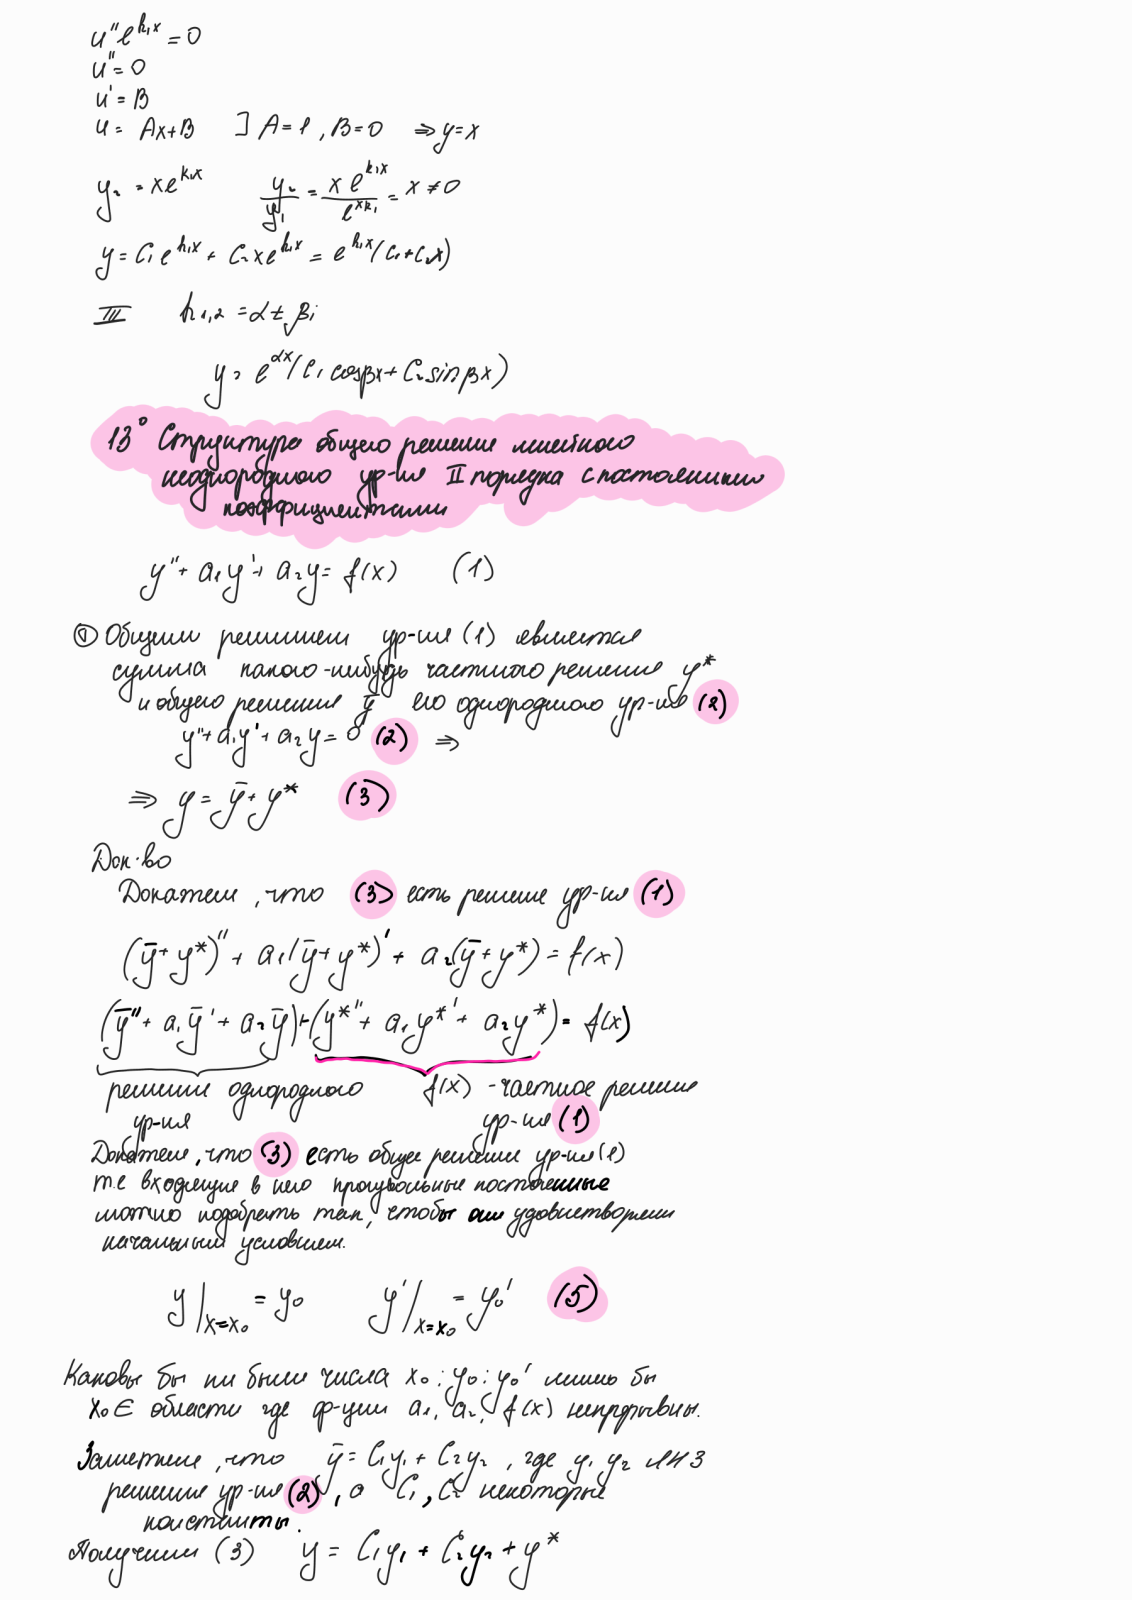 u''e^{k₁x} = 0
u'' = 0
u' = B
u = Ax+B ] A=1, B=0 ⇒ y=x
y₂ = xe^{k₁x} y₂/y₁ = xe^{k₁x}/e^{xk₁} = x ≠ 0
y = C₁e^{k₁x} + C₂xe^{k₁x} = e^{k₁x}(C₁+C₂x)
III k₁,₂ = α ± βi
y = e^{αx}(C₁cosβx + C₂sinβx)
13° Структура общего решение линейного
неоднородного ур-ия II порядка с постоянными
коэффициентами
y'' + a₁y' + a₂y = f(x) (1)
Ⓣ Общим решением ур-ия (1) является
сумма какого-нибудь частного решение y*
и общего решение ȳ его однородного ур-ия (2)
y'' + a₁y' + a₂y = 0 (2) ⇒
⇒ y = ȳ + y* (3)
Док-во
Докажем, что (3) есть решение ур-ия (1)
(ȳ+y*)'' + a₁(ȳ+y*)' + a₂(ȳ+y*) = f(x)
(ȳ'' + a₁ȳ' + a₂ȳ) + (y*'' + a₁y*' + a₂y*) = f(x)
решение однородного f(x) - частное решение
ур-ия ур-ия (1)
Докажем, что (3) есть общее решение ур-ия (1)
т.е входящие в него произвольные постоянные
можно подобрать так, чтобы они удовлетворяли
начальным условием.
y|ₓ₌ₓ₀ = y₀ y'|ₓ₌ₓ₀ = y₀' (5)
Каковы бы ни были числа x₀; y₀; y₀' лишь бы
x₀ ∈ области где ф-ции a₁, a₂, f(x) непрерывны.
Заметем, что ȳ = C₁y₁ + C₂y₂, где y₁ y₂ ЛНЗ
решение ур-ия (2), а C₁, C₂ некоторые
константы.
Получим (3) y = C₁y₁ + C₂y₂ + y*